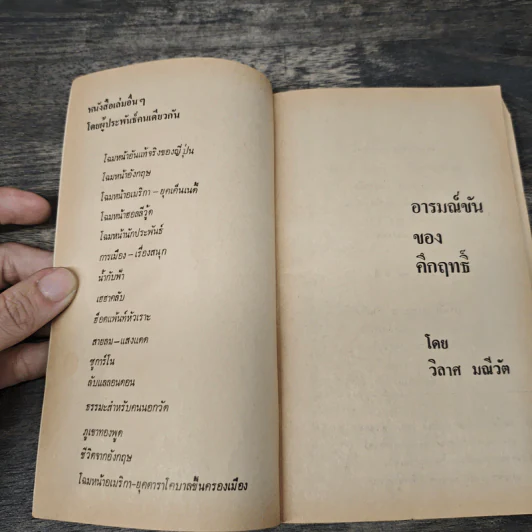 หนังสือเล่มอื่น ๆ
โดยผู้ประพันธ์คนเดียวกัน
โฉมหน้าอันแท้จริงของญี่ปุ่น
โฉมหน้าอังกฤษ
โฉมหน้าอเมริกา – ยุคเค็นเนดี้
โฉมหน้าฮอลลีวู้ด
โฉมหน้านักประพันธ์
การเมือง – เรื่องสนุก
น้ำกับฟ้า
เฮฮาคลับ
ฮ็อตแพ้นท์หัวเราะ
สายลม – แสงแดด
ชูการ์โน
ลับแลลอนดอน
ธรรมะสำหรับคนนอกวัด
ภูเขาทองพูด
ชีวิตจากอังกฤษ
โฉมหน้าอเมริกา-ยุคดาราโคบาลขึ้นครองเมือง
อารมณ์ขัน
ของ
คึกฤทธิ์
โดย
วิลาศ มณีวัต